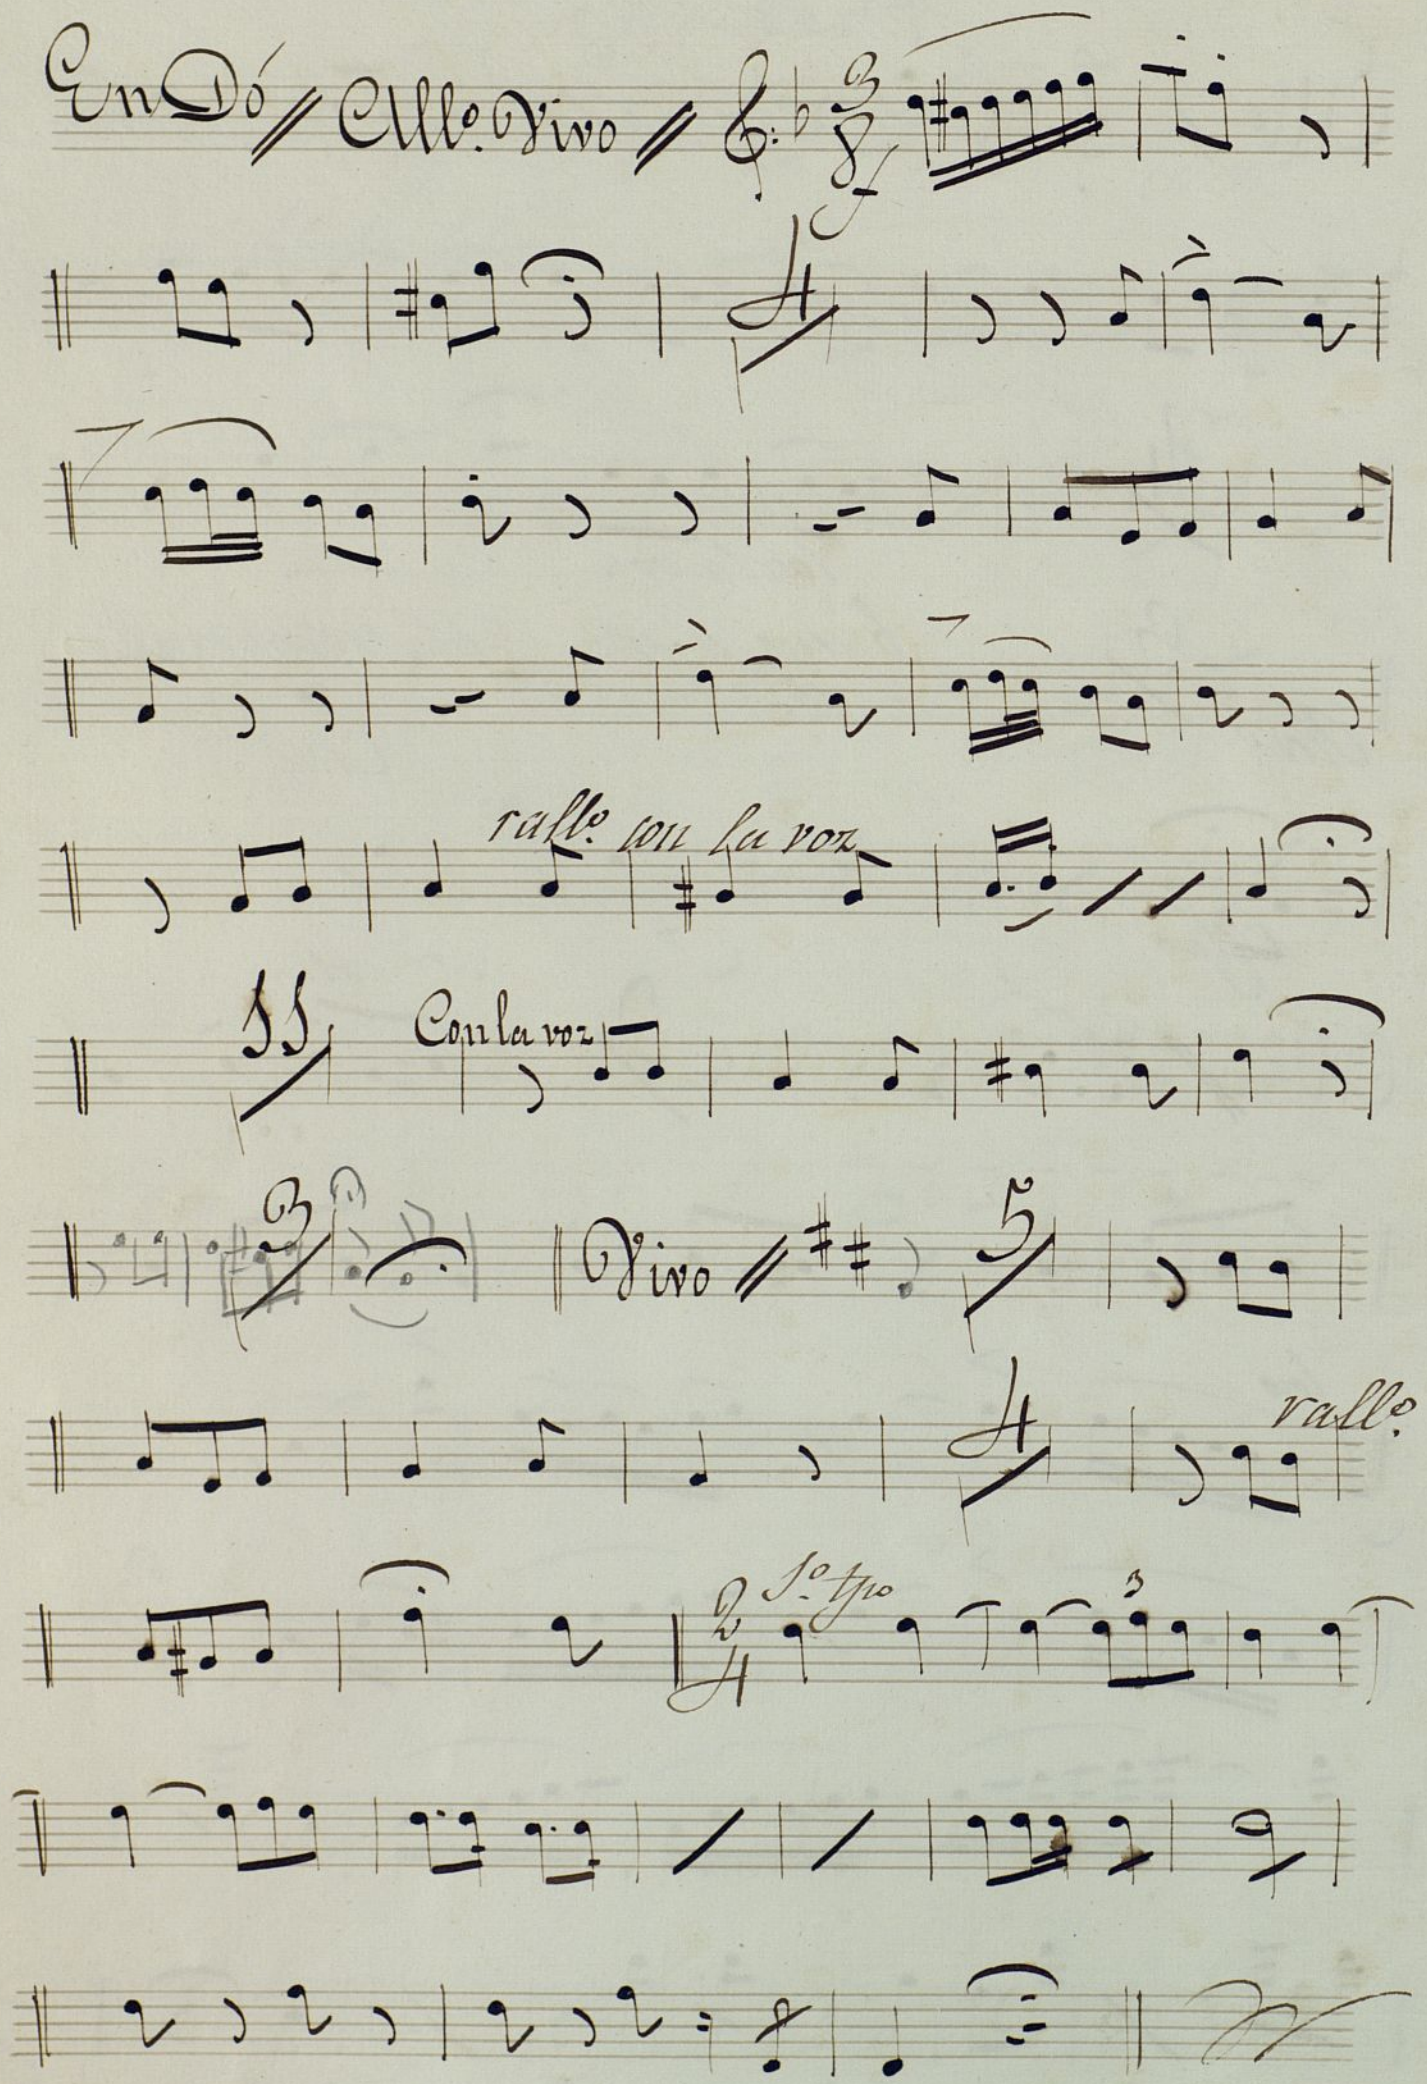 En Dó // All.º Vivo // 3 8
f
4
rall.º con la voz
11 Con la voz
3 Vivo // 5
4 rall.º
2 4 1.º tpo 3